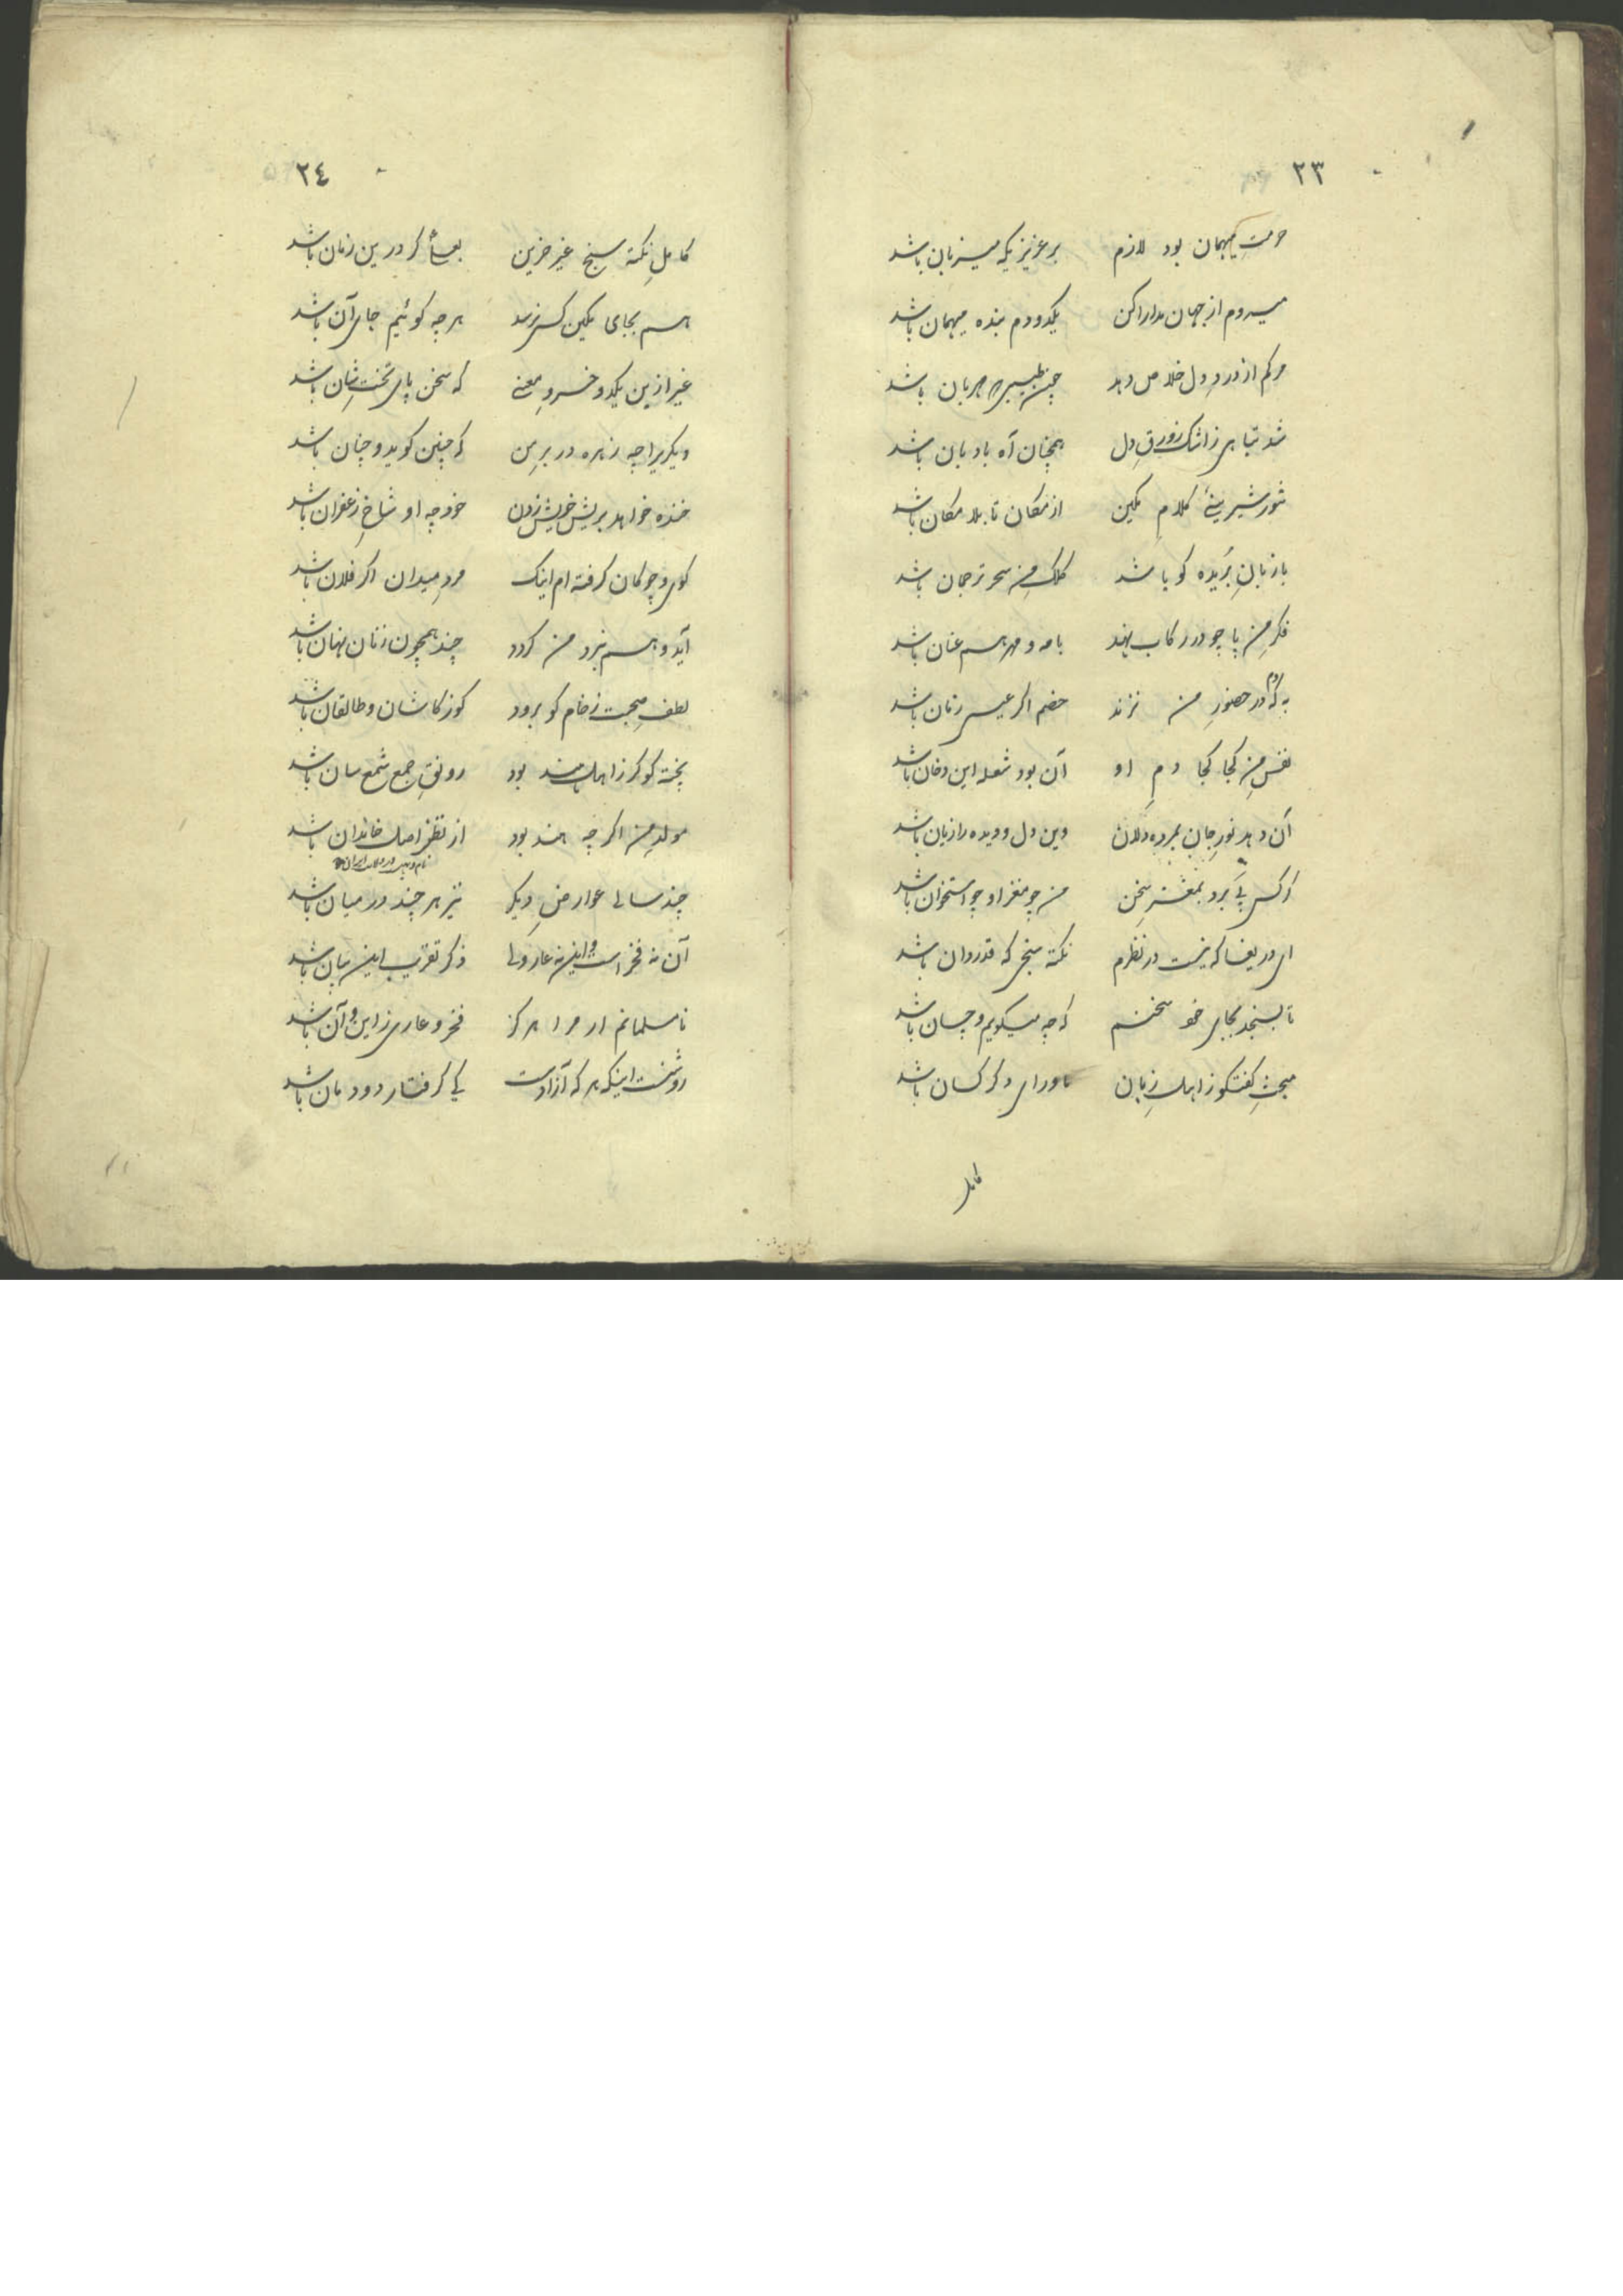 ٢٣
حرمت میهمان بود لازم بر عزیزیکه میزبان باشد
میروم از جهان مدارا کن یکدو دم بنده میهمان باشد
مرکم از درد دل خلاص دهد چین طبیبی مهربان باشد
شد تباهی ز اشک زورقِ دل همچنان آه بادبان باشد
شور شیرینیٔ کلامِ نمکین از مکان تا بلا مکان باشد
با زبانِ بریده کویا شد کلکِ من سحر ترجمان باشد
فکرِ من پا چو در رکاب نهد با مه و مهر هم عنان باشد
به که در حضورِ من نزند دم خصم اکر عیسی زمان باشد
نفسِ من کجا کجا دمِ او آن بود شعله این دخان باشد
آن دهد نورِ جان بمرده دلان وین دل و دیده را زیان باشد
ار کس پی برد بمغزِ سخن من چو مغز او چو استخوان باشد
ای دریغا که نیست در نظرم نکته سنجی که قدردان باشد
تا بسنجد بجای خود سخنم که چه میکویم و چسان باشد
مبحثِ کفتکو ز اهلِ زبان ماورای دکر کسان باشد
کامل
٢٤
کاملِ نکته سنج غیر حزین بعسأ کر درین زمان باشد
هم بجای نمکین کس نرسد هرچه کوئیم جای آن باشد
غیر ازین یکدو خسروِ معنی که سخن پای تختِ شان باشد
دیکریرا چه زهره در برِ من که چنین کوید و چنان باشد
خنده خواهد بریش خویش زدن خود چه او شاخِ زعفران باشد
کوی و چوکان کرفته ام اینک مردِ میدان اکر فلان باشد
آید و هم نبرد من کردد چند همچون زنان نهان باشد
لطفِ صحبت ز خام کو برود کو ز کاشان و طالقان باشد
پخته کو کر ز اهل هند بود رونقِ جمع شمع سان باشد
مولدِ من اکر چه هند بود از نطنز اصل خاندان باشد
چند سالی عوارضِ دیکر نیز هر چند در میان باشد
آن نه فخر است و این نه عار ولی ذکر تقریب این بیان باشد
نامسلمانم ار مرا هرکز فخر و عاری ز این و آن باشد
روشنست اینکه هر که آزادست کی کرفتار دودمان باشد